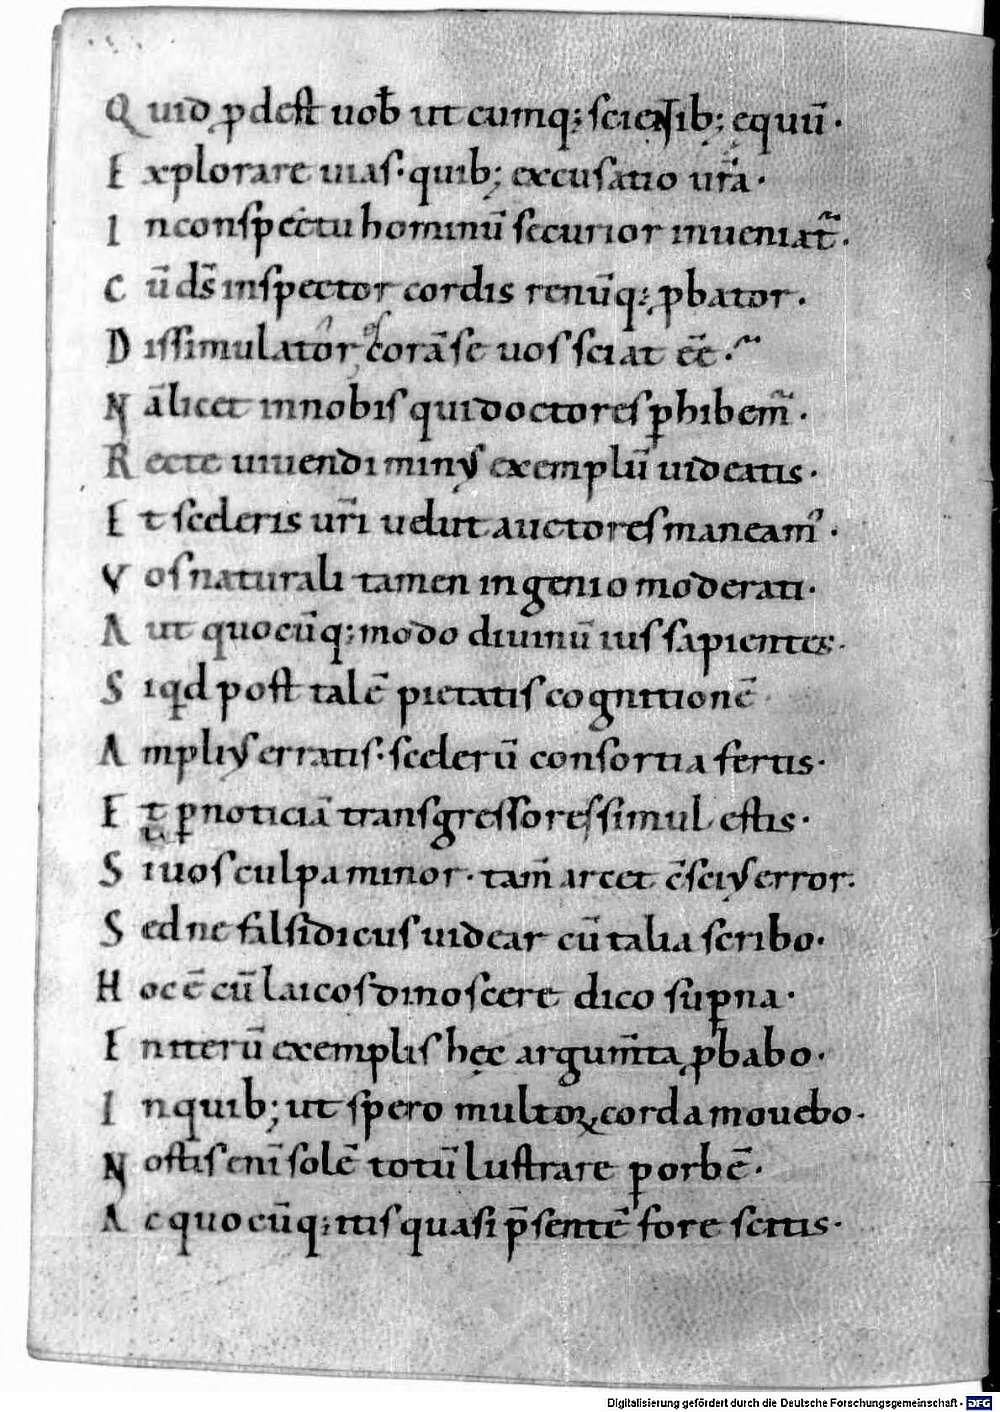 Quid ꝓdest uob̄ ut cumq; scientib; equū·
Explorare uias· quib; excusatio ur̄a·
In conspectu hominū securior inueniat᷑·
Cū dn̄s inspector cordis renūq; ꝓbator·
Dissimulator corā se uos sciat eē·
Nā licet in nobis qui doctores ꝑhibemur·
Recte uiuendi minꝰ exemplū uideatis·
Et sceleris ur̄i uelut auctores maneamꝰ·
Vos naturali tamen ingenio moderati·
Aut quocūq; modo diuinū ius sapientes·
Siqd post talē pietatis cognitionē
Ampliꝰ erratis· scelerū consortia fertis·
Et ꝑ noticiā transgressores simul estis·
Si uos culpa minor· tam̄ arcet c̄sciꝰ error·
Sed ne falsidicus uidear cū talia scribo·
Hoc ē cū laicos dinoscere dico suꝑna·
En iterū exemplis hęc argum̄ta ꝓbabo·
In quib; ut spero multoꝝ corda mouebo·
Nostis eni̅ solē totū lustrare ꝑ orbē·
Ac quocūq; itis quasi p̄sentē fore scitis·
Digitalisierung gefördert durch die Deutsche Forschungsgemeinschaft - DFG